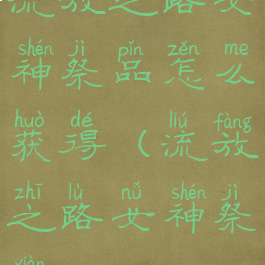 流放之路女
shén jì pǐn zěn me
神祭品怎么
huò dé liú fàng
获得（流放
zhī lù nǚ shén jì
之路女神祭
xiàn